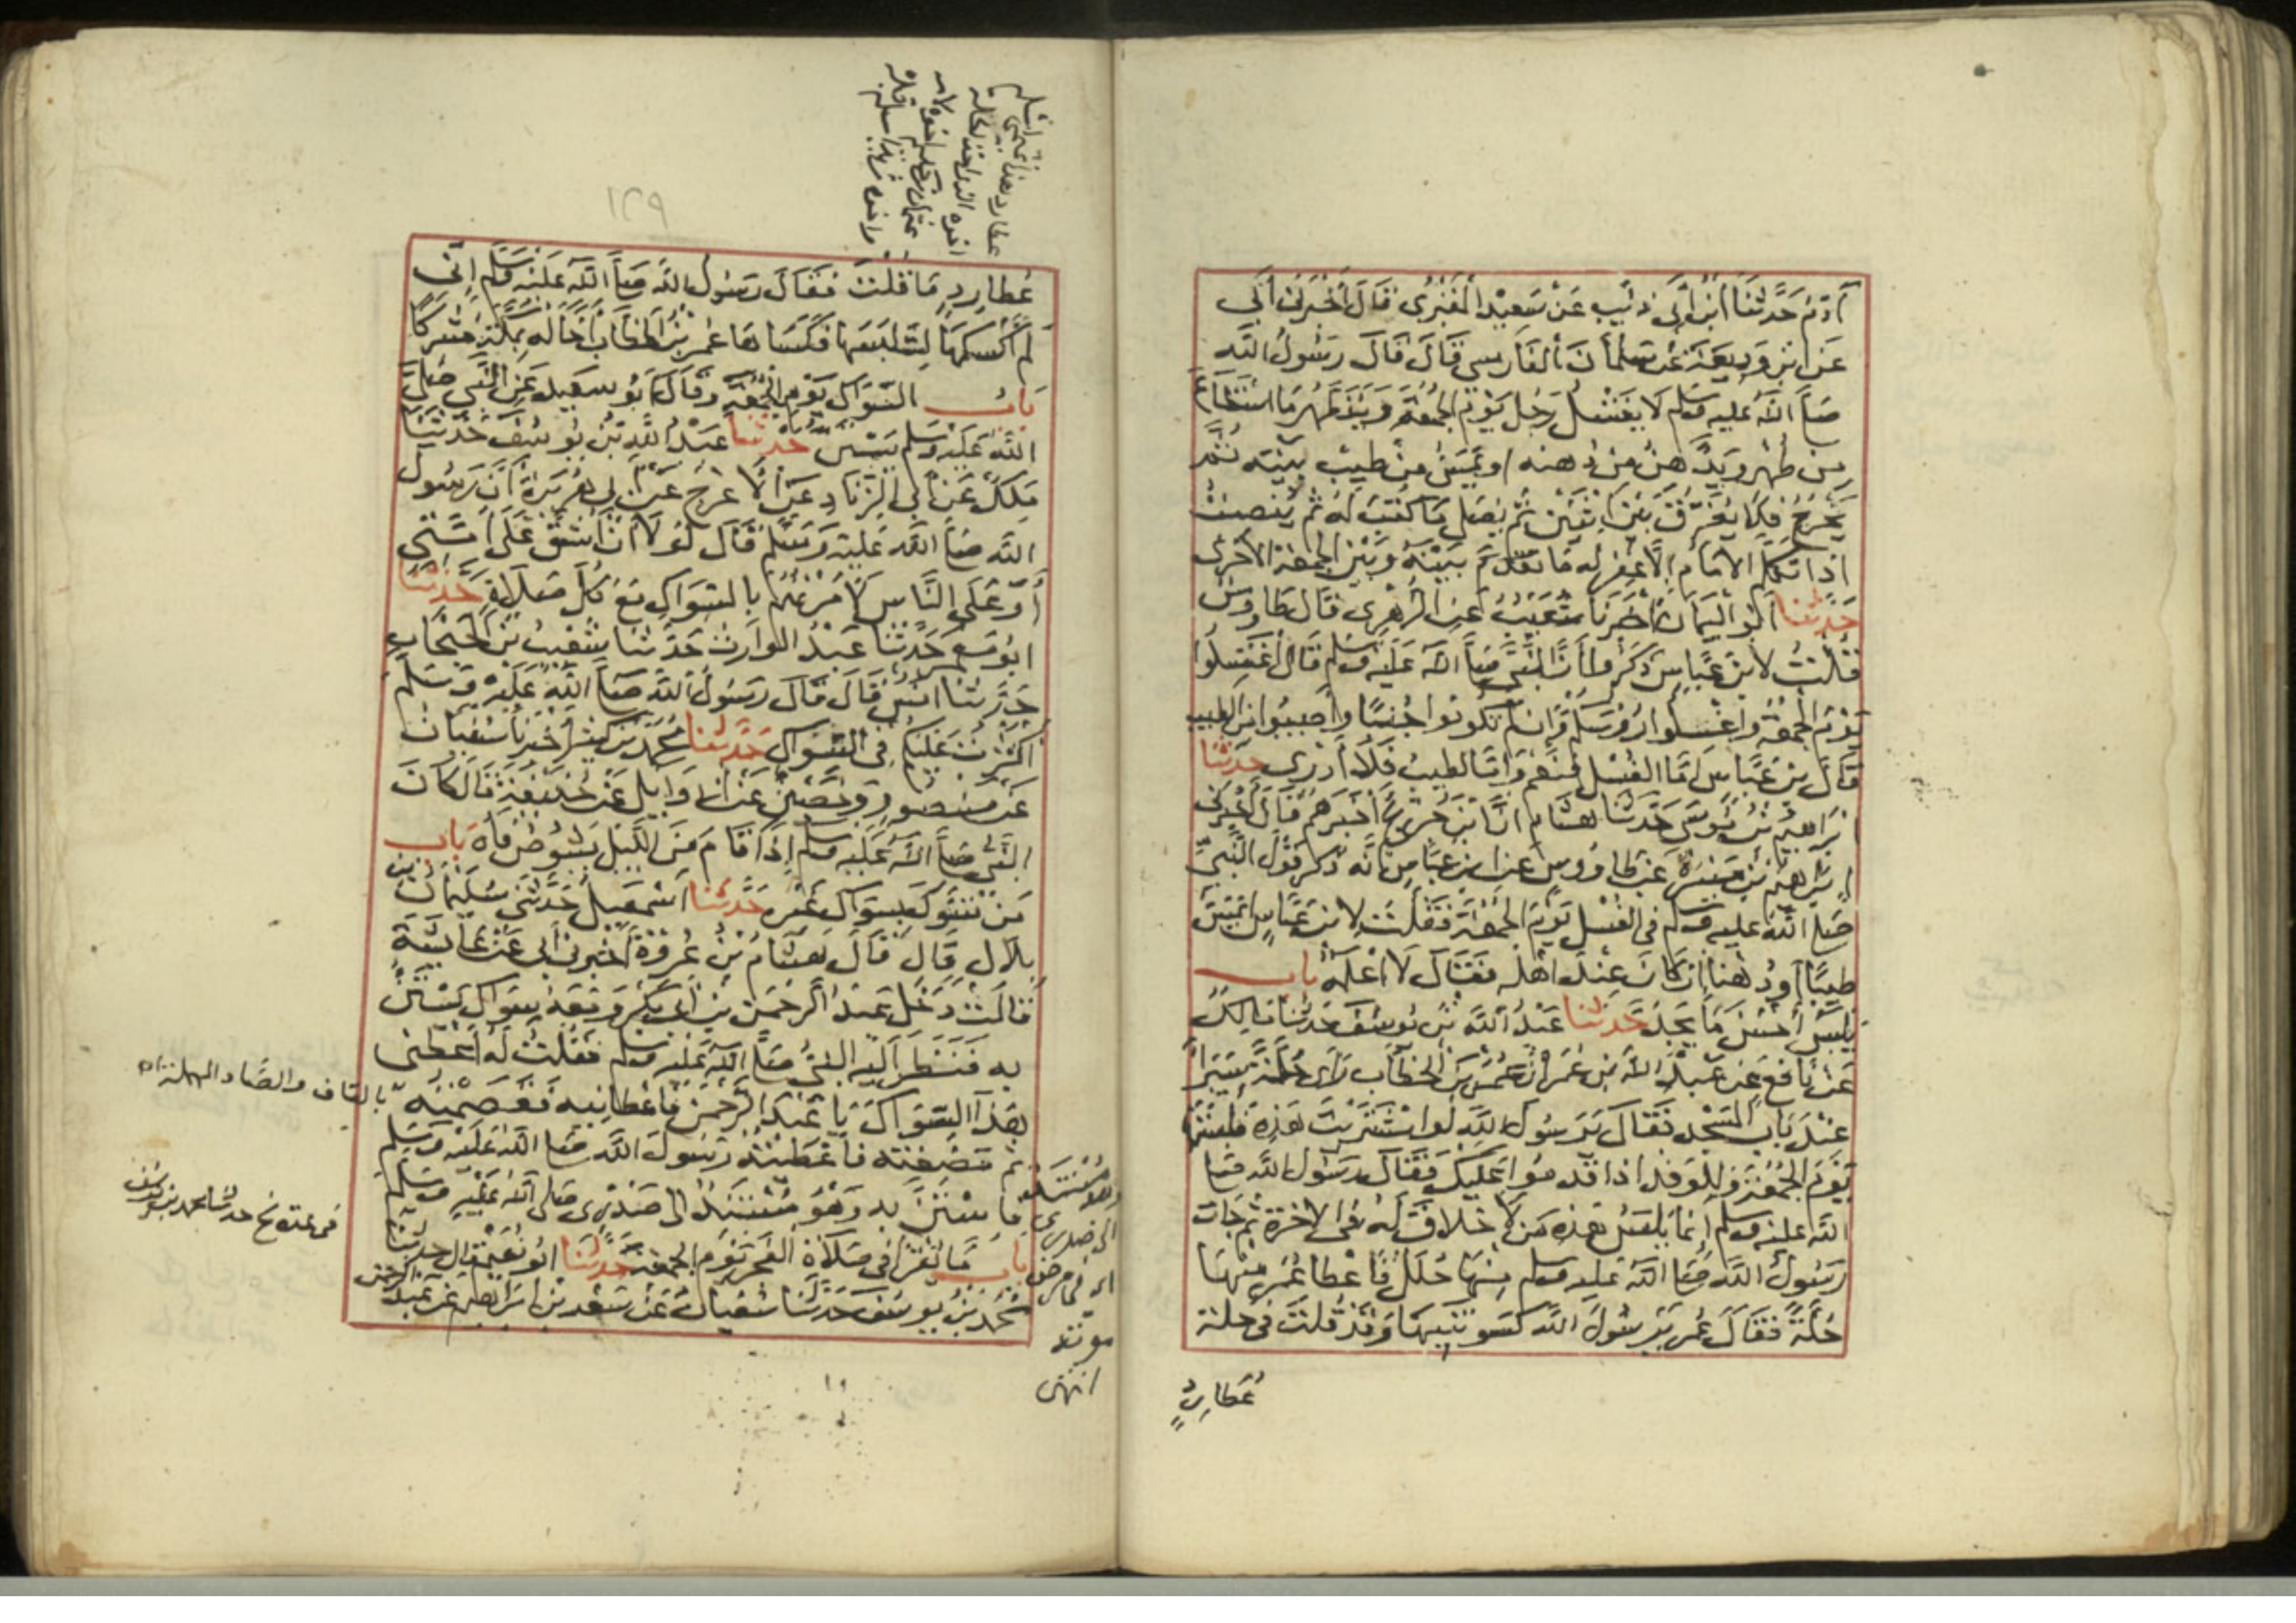 آدم حدثنا ابن أبي ذئيب عن سعيد المقبري قال أخبرني أبي
عن ابن وديعة عن سلمان الفارسي قال قال رسول الله
صلى الله عليه وسلم لا يغتسل رجل يوم الجمعة ويتطهر ما استطاع
من طهر ويدهن من دهنه او يمس من طيب بيته ثم
يخرج فلا يفرق بين اثنين ثم يصلي ما كتب له ثم ينصت
اذا تكلم الامام الا غفر له ما تقدم بينه وبين الجمعة الاخرى
حدثنا ابو اليمان اخبرنا شعيب عن الزهري قال طاووس
قلت لابن عباس ذكروا أن النبي صلى الله عليه وسلم قال اغتسلوا
يوم الجمعة واغسلوا رؤسكم وان لم تكونوا جنبا وأصيبوا من الطيب
قال بن عباس اما الغسل فنعم واما الطيب فلا أدري حدثنا
ابراهيم بن موسى حدثنا هشام ان ابن جريج أخبرهم قال أخبرني
ابرهيم بن ميسرة عن طاووس عن ابن عباس انه ذكر قول النبي
صلى الله عليه وسلم في الغسل يوم الجمعة فقلت لابن عباس ايمس
طيبا أو دهنا ان كان عند اهله فقال لا اعلمه باب
يلبس أحسن ما يجد حدثنا عبد الله بن يوسف حدثنا مالك
عن نافع عن عبد الله بن عمر أن عمر بن الخطاب رأى حلة سيراء
عند باب المسجد فقال يرسول الله لو اشتريت هذه فلبستها
يوم الجمعة وللوفد اذا قدموا عليك فقال رسول الله صلى
الله عليه وسلم إنما يلبس هذه من لا خلاق له في الاخرة ثم جات
رسول الله صلى الله عليه وسلم منها حلل فاعطا عمر منها
حلة فقال عمر يرسول الله كسوتنيها وقد قلت في حلة
عطارد
١٢٩
عطارد ما قلت فقال رسول الله صلى الله عليه وسلم إني
لم أكسكها لتلبسها فكساها عمر بن الخطاب أخا له بمكة مشركا
باب السواك يوم الجمعة وقال ابو سعيد عن النبي صلى
الله عليه وسلم يستن حدثنا عبد الله بن يوسف حدثنا
ملك عن أبي الزناد عن الاعرج عن أبي هريرة أن رسول
الله صلى الله عليه وسلم قال لولا ان اشق على امتي
أو على الناس لامرتهم بالسواك مع كل صلاة حدثنا
ابو معمر حدثنا عبد الوارث حدثنا شعيب بن الحبحاب
حدثنا انس قال قال رسول الله صلى الله عليه وسلم
اكثرت عليكم في السواك حدثنا محمد بن كثير أخبرنا سفيان
عن منصور وحصين عن ابي وايل عن حذيفة قال كان
النبي صلى الله عليه وسلم إذا قام من الليل يشوص فاه باب
من تسوك بسواك غيره حدثنا اسمعيل حدثني سليمان بن
بلال قال قال هشام بن عروة أخبرني أبي عن عايشة
قالت دخل عبد الرحمن بن أبي بكر ومعه سواك يستن
به فنظر اليه النبي صلى الله عليه وسلم فقلت له اعطني
هذا السواك يا عبد الرحمن فاعطانيه فقصمته
ثم مضغته فأعطيته رسول الله صلى الله عليه وسلم
فاستن به وهو مستند الى صدري صلى الله عليه وسلم
باب ما يقرا في صلاة الفجر يوم الجمعة حدثنا ابو نعيم قال حدثنا
محمد بن يوسف حدثنا سفيان عن سعد بن ابراهيم عن عبد الرحمن
بالقاف والصاد المهملة
حدثنا محمد بن يوسف
الى صدري
موته
انتهى